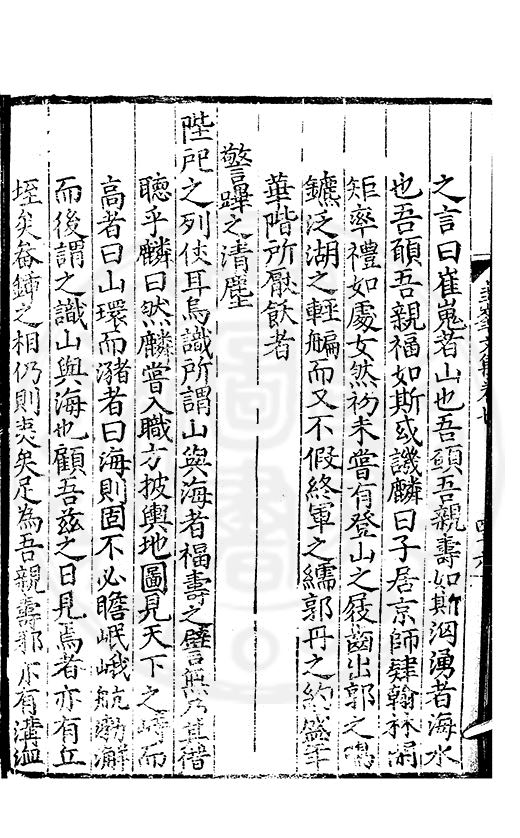 之言曰崔嵬者山也吾願吾親壽如斯洶湧者海水
也吾願吾親福如斯或譏麟曰子居京師肄翰林閑
矩率禮如處女然初未嘗有登山之屐齒出郭之鳴
鑣泛湖之輕艑而又不假終軍之繻郭丹之約盛年
華階所厭飫者
警蹕之清塵
陛戺之列侍耳烏識所謂山與海者福壽之譬無乃其借
聽乎麟曰然麟嘗入職方披輿地圖見天下之峙而
高者曰山環而瀦者曰海則固不必瞻岷峨航渤澥
而後謂之識山與海也顧吾茲之日見焉者亦有丘
垤矣畚鍤之相仍則夷矣足為吾親壽邪亦有溝澮